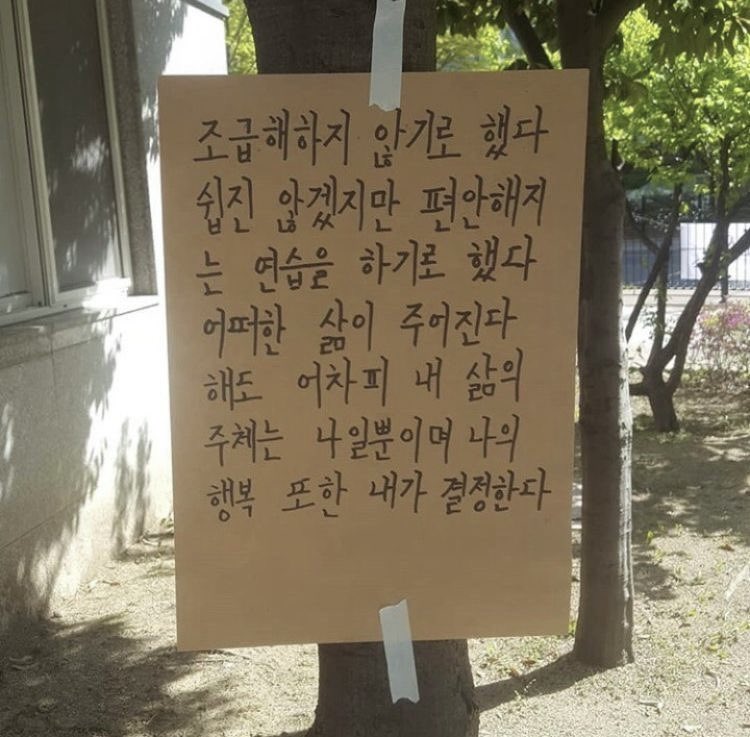 조급해하지 않기로 했다
쉽진 않겠지만 편안해지
는 연습을 하기로 했다
어떠한 삶이 주어진다
해도 어차피 내 삶의
주체는 나일뿐이며 나의
행복 또한 내가 결정한다